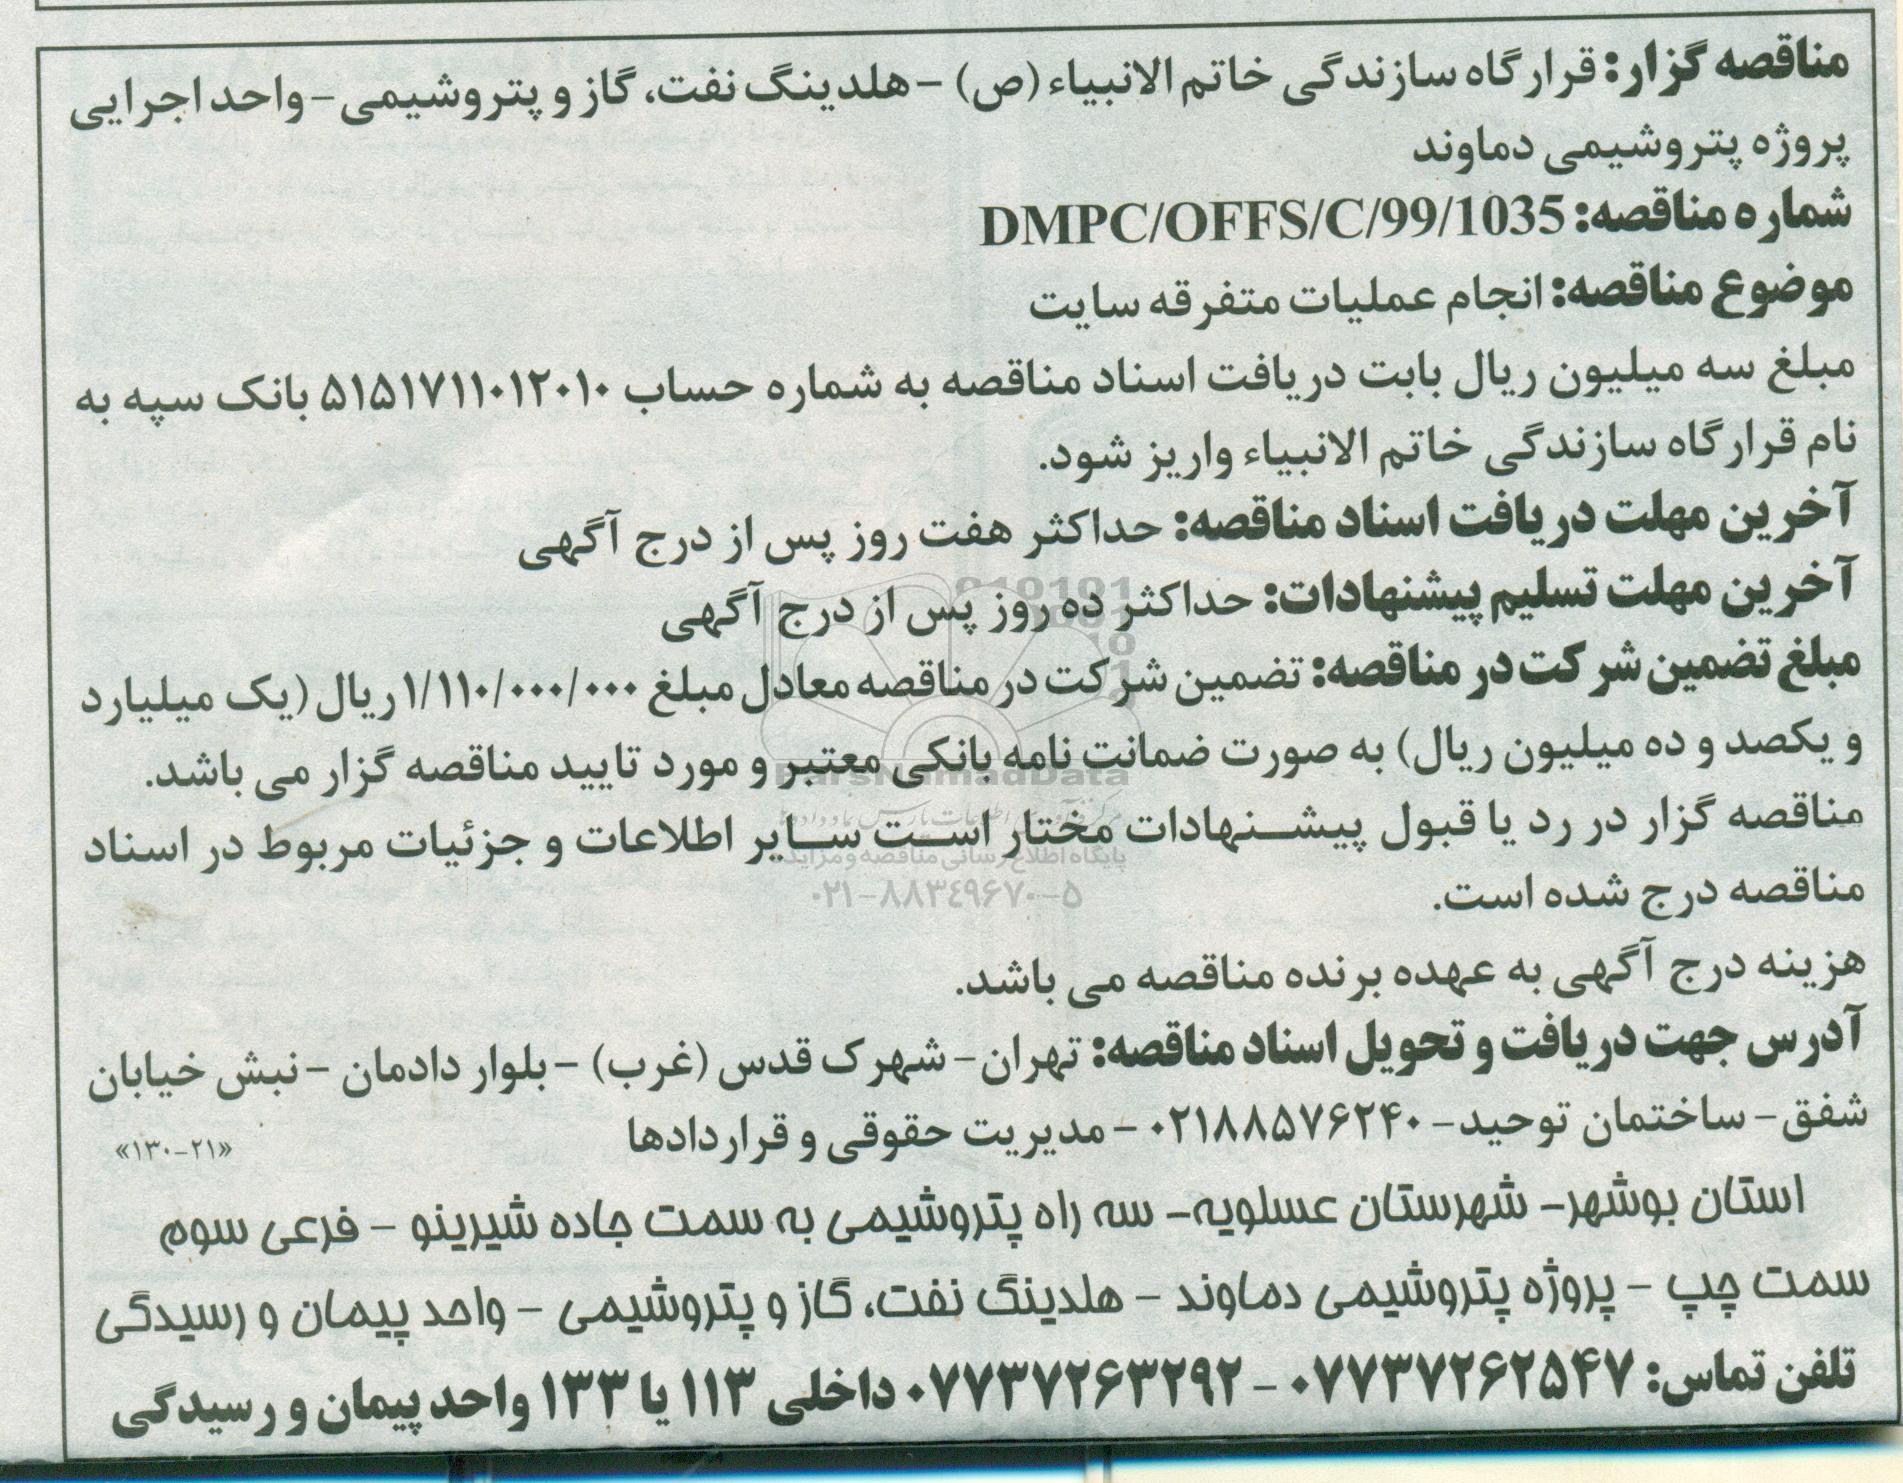 مناقصه گزار: قرارگاه سازندگی خاتم الانبیاء (ص) - هلدینگ نفت، گاز و پتروشیمی - واحد اجرایی
پروژه پتروشیمی دماوند
شماره مناقصه: DMPC/OFFS/C/99/1035
موضوع مناقصه: انجام عملیات متفرقه سایت
مبلغ سه میلیون ریال بابت دریافت اسناد مناقصه به شماره حساب ۵۱۵۱۷۱۱۰۱۲۰۱۰ بانک سپه به
نام قرارگاه سازندگی خاتم الانبیاء واریز شود.
آخرین مهلت دریافت اسناد مناقصه: حداکثر هفت روز پس از درج آگهی
آخرین مهلت تسلیم پیشنهادات: حداکثر ده روز پس از درج آگهی
مبلغ تضمین شرکت در مناقصه: تضمین شرکت در مناقصه معادل مبلغ ۱/۱۱۰/۰۰۰/۰۰۰ ریال (یک میلیارد
و یکصد و ده میلیون ریال) به صورت ضمانت نامه بانکی معتبر و مورد تایید مناقصه گزار می باشد.
ParsNamadData
مناقصه گزار در رد یا قبول پیشنهادات مختار است سایر اطلاعات و جزئیات مربوط در اسناد
پایگاه اطلاع رسانی مناقصه و مزایده
مناقصه درج شده است.
۰۲۱-۸۸۳۴۹۶۷۰-۵
هزینه درج آگهی به عهده برنده مناقصه می باشد.
آدرس جهت دریافت و تحویل اسناد مناقصه: تهران - شهرک قدس (غرب) - بلوار دادمان - نبش خیابان
شفق - ساختمان توحید - ۰۲۱۸۸۵۷۶۲۴۰ - مدیریت حقوقی و قراردادها
«۱۳۰-۲۱»
استان بوشهر- شهرستان عسلویه- سه راه پتروشیمی به سمت جاده شیرینو - فرعی سوم
سمت چپ - پروژه پتروشیمی دماوند - هلدینگ نفت، گاز و پتروشیمی - واحد پیمان و رسیدگی
تلفن تماس: ۰۷۷۳۷۲۶۲۵۴۷ - ۰۷۷۳۷۲۶۳۲۹۲ داخلی ۱۱۳ یا ۱۳۳ واحد پیمان و رسیدگی